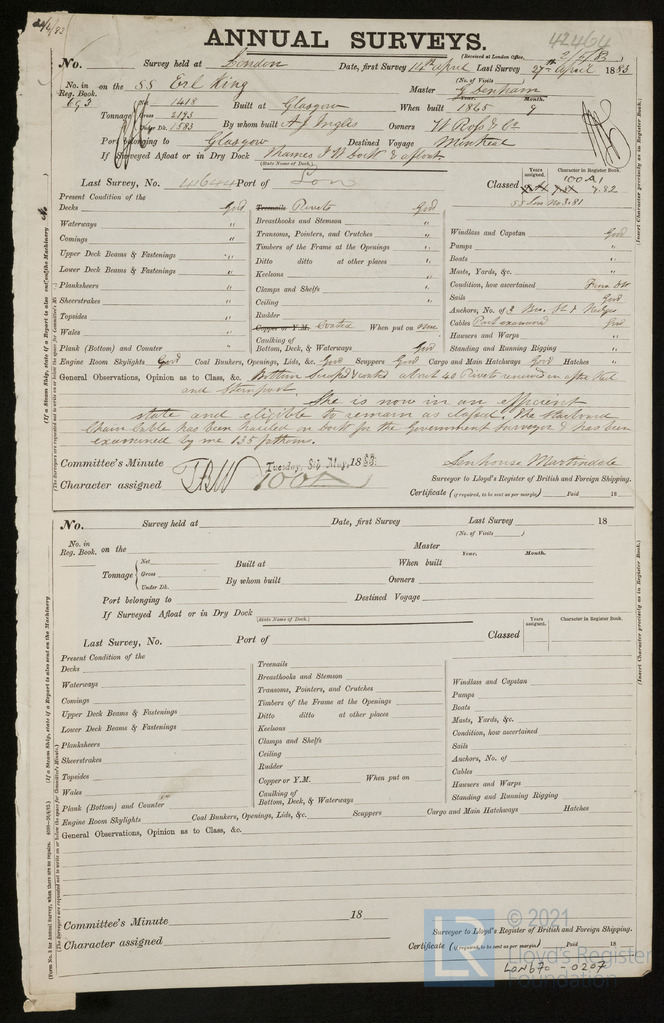 24/4/83
ANNUAL SURVEYS.
42464
(Received at London Office, 2/5/83)
No. Survey held at London Date, first Survey 14th April Last Survey 27th April 1883
(No. of Visits)
No. in Reg. Book. 692 on the SS Erl King Master G Denham
Year. Month.
Net 1418 Built at Glasgow When built 1865 9
Tonnage Gross 2193
Under Dk. 1583 By whom built A & J Inglis Owners W Ross & Co
Port belonging to Glasgow Destined Voyage Montreal
If Surveyed Afloat or in Dry Dock Thames I W Dock & afloat
(State Name of Dock.)
Years assigned. Character in Register Book.
Last Survey, No. 4644 Port of Lon Classed 100A1 7.82
SS Lon No 3.81
Present Condition of the
Decks Good
Waterways "
Comings "
Upper Deck Beams & Fastenings "
Lower Deck Beams & Fastenings "
Planksheers "
Sheerstrakes "
Topsides "
Wales "
Plank (Bottom) and Counter "
Treenails Rivets Good
Breasthooks and Stemson "
Transoms, Pointers, and Crutches "
Timbers of the Frame at the Openings "
Ditto ditto at other places "
Keelsons "
Clamps and Shelfs "
Ceiling "
Rudder "
Copper or Y.M. Coated When put on now
Caulking of Bottom, Deck, & Waterways Good
Windlass and Capstan Good
Pumps "
Boats "
Masts, Yards, &c. "
Condition, how ascertained From Dk
Sails Good
Anchors, No. of 3 Bro. St & Kedges
Cables Part examined Good
Hawsers and Warps "
Standing and Running Rigging "
Engine Room Skylights Good Coal Bunkers, Openings, Lids, &c. Good Scuppers Good Cargo and Main Hatchways Good Hatches "
General Observations, Opinion as to Class, &c. Bottom Scraped & coated about 40 Rivets renewed in after Keel
and Sternpost.
She is now in an efficient
state and eligible to remain as classed. The starboard
Chain Cable has been hauled on dock for the Government Surveyor & has been
examined by me 135 fathoms.
Committee's Minute Tuesday, 8th May, 1883
Character assigned 100A
Senhouse Martindale
Surveyor to Lloyd's Register of British and Foreign Shipping.
Certificate (if required, to be sent as per margin) Paid 18
No. Survey held at Date, first Survey Last Survey 18
(No. of Visits)
No. in Reg. Book. on the Master
Year. Month.
Net Built at When built
Tonnage Gross
Under Dk. By whom built Owners
Port belonging to Destined Voyage
If Surveyed Afloat or in Dry Dock
(State Name of Dock.)
Years assigned. Character in Register Book.
Last Survey, No. Port of Classed
Present Condition of the
Decks
Waterways
Comings
Upper Deck Beams & Fastenings
Lower Deck Beams & Fastenings
Planksheers
Sheerstrakes
Topsides
Wales
Plank (Bottom) and Counter
Treenails
Breasthooks and Stemson
Transoms, Pointers, and Crutches
Timbers of the Frame at the Openings
Ditto ditto at other places
Keelsons
Clamps and Shelfs
Ceiling
Rudder
Copper or Y.M. When put on
Caulking of Bottom, Deck, & Waterways
Windlass and Capstan
Pumps
Boats
Masts, Yards, &c.
Condition, how ascertained
Sails
Anchors, No. of
Cables
Hawsers and Warps
Standing and Running Rigging
Engine Room Skylights Coal Bunkers, Openings, Lids, &c. Scuppers Cargo and Main Hatchways Hatches
General Observations, Opinion as to Class, &c.
Committee's Minute 18
Character assigned
Surveyor to Lloyd's Register of British and Foreign Shipping.
Certificate (if required, to be sent as per margin) Paid 18
LR © 2021
Lloyd's Register
Foundation
LON670-0207
(Insert Character precisely as in Register Book.)
(Insert Character precisely as in Register Book.)
(If a Steam Ship, state if a Report is also sent on the Machinery
(The Surveyors are requested not to write on or below the space for Committee's Minute.)